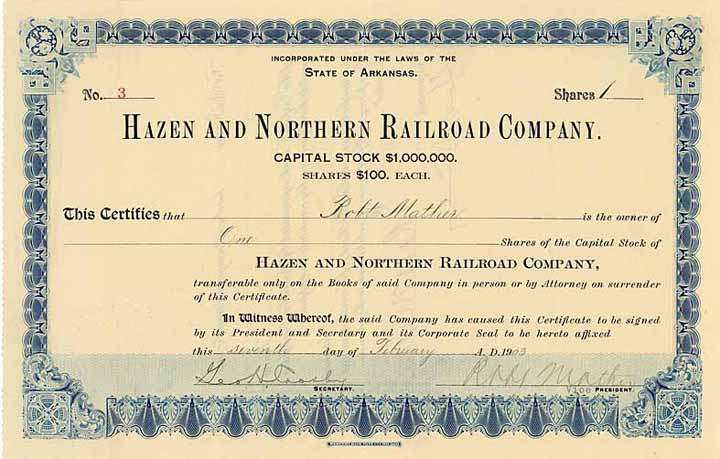 INCORPORATED UNDER THE LAWS OF THE
STATE OF ARKANSAS.
No. 3 Shares 1
HAZEN AND NORTHERN RAILROAD COMPANY.
CAPITAL STOCK $1,000,000.
SHARES $100. EACH.
This Certifies that Robt Mather is the owner of
One Shares of the Capital Stock of
HAZEN AND NORTHERN RAILROAD COMPANY,
transferable only on the Books of said Company in person or by Attorney on surrender
of this Certificate.
In Witness Whereof, the said Company has caused this Certificate to be signed
by its President and Secretary and its Corporate Seal to be hereto affixed
this seventh day of February A.D. 1903
Robt Mather
SECRETARY. VICE PRESIDENT.